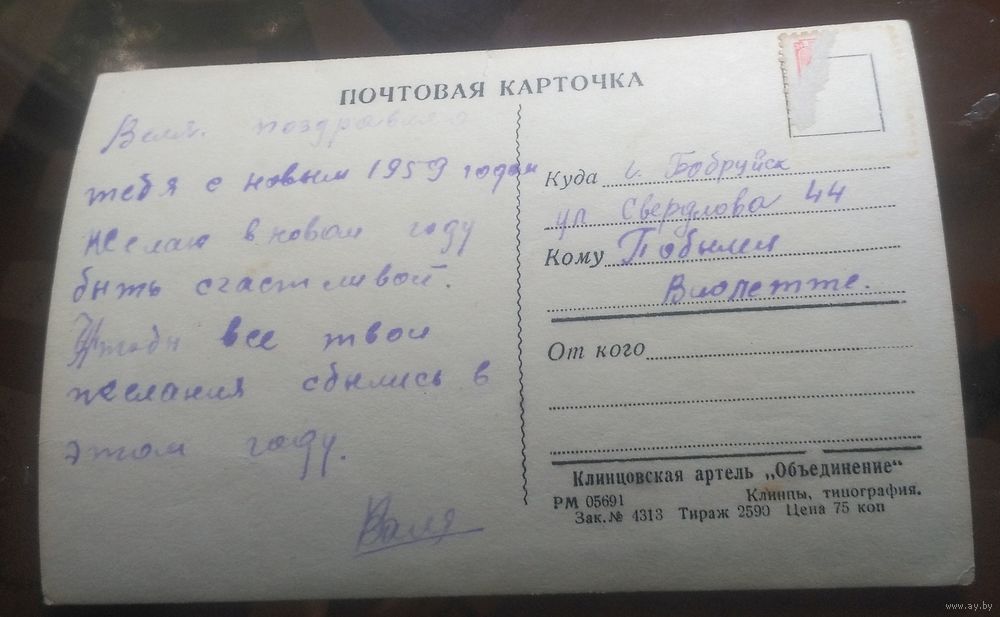 ПОЧТОВАЯ КАРТОЧКА
поздравляю
тебя с новым 1959 годом
Желаю в новом году
быть счастливой.
Чтобы все твои
желания сбылись в
этом году.
Валя
Куда г. Бобруйск
ул Свердлова 44
Кому
Виолетте.
От кого
Клинцовская артель „Объединение“
РМ 05691 Клинцы, типография.
Зак. № 4313 Тираж 2590 Цена 75 коп
www.ay.by